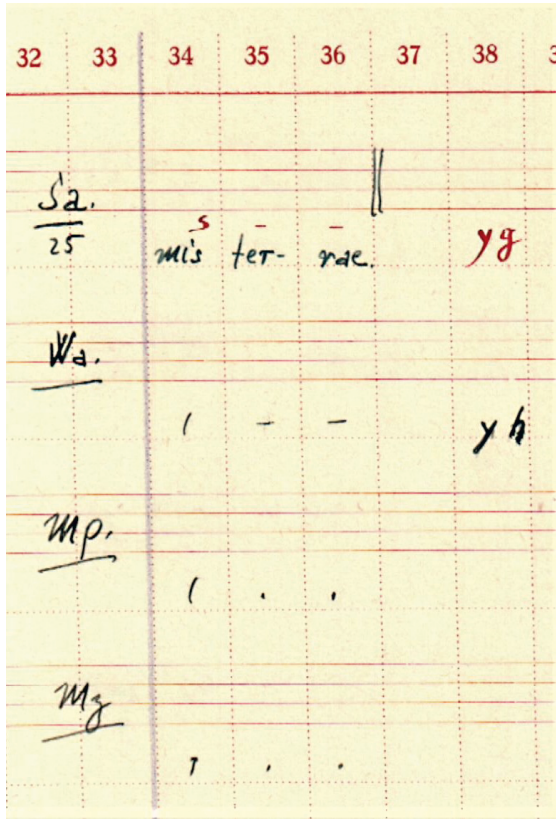 32 33 34 35 36 37 38 3
Sa.
25
s - -
mis ter- rae. yg
Wa.
( - - yh
Mp.
( . .
Mz
. .